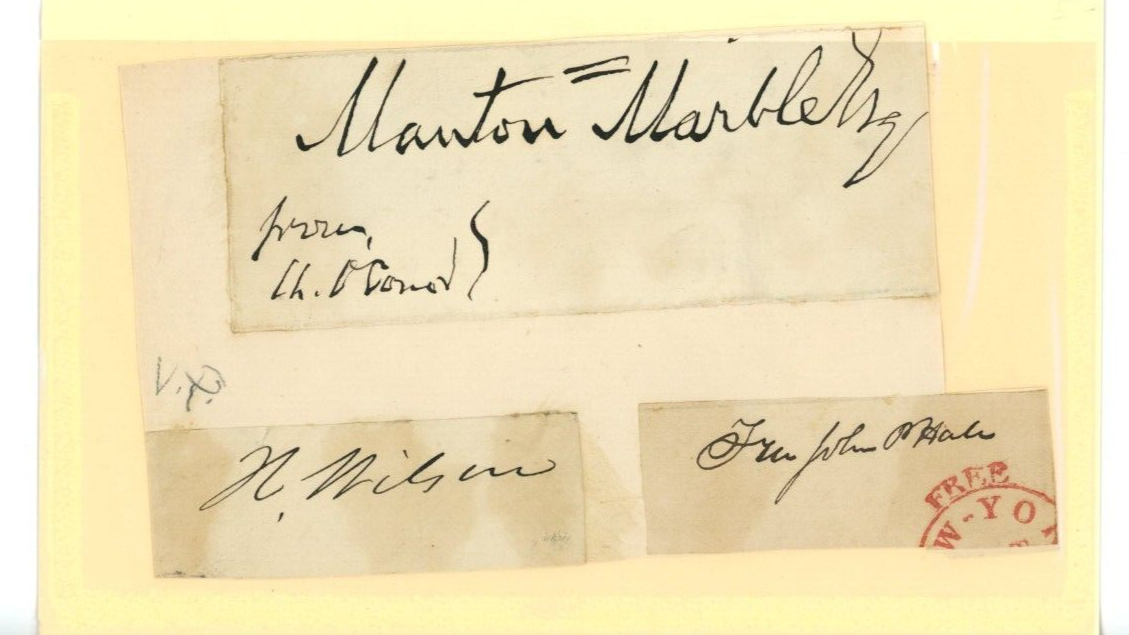 Manton = Marble Esq
from,
Ch. O'Conor
V.P.
H. Wilson
Free John P Hale
FREE
W-YO